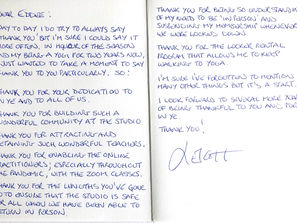 DAY TO DAY I DO TRY TO ALWAYS SAY
THANK YOU BUT I'M SURE I COULD SAY IT
MORE OFTEN, IN HONOR OF THE SEASON
AND MY BEING A YOGI FOR TWO YEARS NOW,
JUST WANTED TO TAKE A MOMENT TO SAY
THANK YOU TO YOU PARTICULARLY. SO:
THANK YOU FOR YOUR DEDICATION TO
AND TO ALL OF US.
THANK YOU FOR BUILDING SUCH A
WONDERFUL COMMUNITY AT THE STUDIO
THANK YOU FOR ATTRACTING AND
RETAINING SUCH WONDERFUL TEACHERS.
THANK YOU FOR ENABLING THE ONLINE
PRACTITIONERS; ESPECIALLY THROUGHOUT
THE PANDEMIC, WITH THE ZOOM CLASSES.
THANK YOU FOR THE LENGTHS YOU'VE GONE
TO ENSURE THAT THE STUDIO IS SAFE
FOR ALL WHEN WE HAVE BEEN ABLE TO
RETURN IN PERSON
THANK YOU FOR BEING SO UNDERSTANDING
OF MY NEED TO BE "IN PERSON" AND
SUSPENDING MY MEMBERSHIP WHENEVER
WE WERE LOCKED DOWN.
THANK YOU FOR THE LOCKER RENTAL
PROGRAM THAT ALLOWS ME TO KEEP
WALKING TO YOGA
I'M SURE I'VE FORGOTTEN TO MENTION
MANY OTHER THINGS BUT IT'S A START.
I LOOK FORWARD TO SEVERAL MORE YEARS
OF BEING THANKFUL TO YOU AND FOR
THANK YOU!